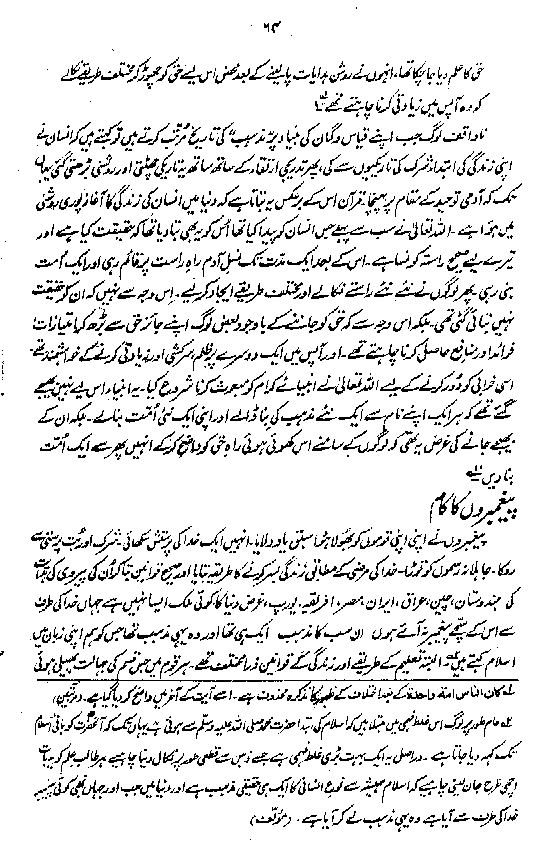 ۶۴
حق کا علم دیا جا چکا تھا، انہوں نے روشن ہدایات پا لینے کے بعد محض اس لیے حق کو چھوڑ کر مختلف طریقے نکالے
کہ وہ آپس میں زیادتی کرنا چاہتے تھے
ناواقف لوگ جب اپنے قیاس و گمان کی بنیاد پر "مذہب" کی تاریخ مرتب کرتے ہیں تو کہتے ہیں کہ انسان نے
اپنی زندگی کی ابتدا شرک کی تاریکیوں سے کی، پھر تدریجی ارتقاء کے ساتھ ساتھ یہ تاریکی چھٹتی اور روشنی بڑھتی گئی یہاں
تک کہ آدمی توحید کے مقام پر پہنچا۔ قرآن اس کے برعکس یہ بتاتا ہے کہ دنیا میں انسان کی زندگی کا آغاز پوری روشنی
میں ہوا ہے۔ اللہ تعالیٰ نے سب سے پہلے جس انسان کو پیدا کیا تھا اُس کو یہ بھی بتا دیا تھا کہ حقیقت کیا ہے اور
تیرے لیے صحیح راستہ کونسا ہے۔ اس کے بعد ایک مدت تک نسلِ آدم راہِ راست پر قائم رہی اور ایک اُمت
بنی رہی۔ پھر لوگوں نے نئے نئے راستے نکالے اور مختلف طریقے ایجاد کر لیے۔ اِس وجہ سے نہیں کہ ان کو حقیقت
نہیں بتائی گئی تھی، بلکہ اس وجہ سے کہ حق کو جاننے کے باوجود بعض لوگ اپنے جائز حق سے بڑھ کر امتیازات،
فوائد اور منافع حاصل کرنا چاہتے تھے۔ اور آپس میں ایک دوسرے پر ظلم، سرکشی اور زیادتی کرنے کے خواہشمند تھے۔
اسی خرابی کو دُور کرنے کے لیے اللہ تعالیٰ نے انبیائے کرام کو مبعوث کرنا شروع کیا۔ یہ انبیاء اس لیے نہیں بھیجے
گئے تھے کہ ہر ایک اپنے نام سے ایک نئے مذہب کی بنا ڈالے اور اپنی ایک نئی اُمت بنا لے۔ بلکہ ان کے
بھیجے جانے کی غرض یہ تھی کہ لوگوں کے سامنے اس کھوئی ہوئی راہِ حق کو واضح کر کے انہیں پھر سے ایک اُمت
بنا دیں
پیغمبروں کا کام
پیغمبروں نے اپنی اپنی قوموں کو بھُولا ہوا سبق یاد دلایا۔ انہیں ایک خدا کی پرستش سکھائی۔ شرک اور بُت پرستی سے
روکا۔ جاہلانہ رسموں کو توڑا۔ خدا کی مرضی کے مطابق زندگی بسر کرنے کا طریقہ بتایا اور صحیح قوانین بتا کر اُن کی پیروی کی ہدایت
کی۔ ہندوستان، چین، عراق، ایران، مصر، افریقہ، یورپ، غرض دنیا کا کوئی ملک ایسا نہیں ہے جہاں خدا کی طرف
سے اس کے سچے پیغمبر نہ آئے ہوں۔ ان سب کا مذہب ایک ہی تھا اور وہ یہی مذہب تھا جس کو ہم اپنی زبان میں
اسلام کہتے ہیں البتہ تعلیم کے طریقے اور زندگی کے قوانین ذرا مختلف تھے۔ ہر قوم میں جس قسم کی جہالت پھیلی ہوئی
کان الناس امۃ واحدۃ کے بعد اختلاف کے ظہور کا تذکرہ محذوف ہے۔ اسے آیت کے آخر میں واضح کر دیا گیا ہے۔ (مرتبین)
عام طور پر لوگ اس غلط فہمی میں مبتلا ہیں کہ اسلام کی ابتدا حضرت محمد صلی اللہ علیہ وسلم سے ہوئی ہے یہاں تک کہ آنحضرتؐ کو بانیٔ اسلام
تک کہہ دیا جاتا ہے۔ دراصل یہ ایک بہت بڑی غلط فہمی ہے جسے ذہن سے قطعی طور پر نکال دینا چاہیے۔ ہر طالب علم کو یہ بات
اچھی طرح جان لینی چاہیے کہ اسلام ہمیشہ سے نوعِ انسانی کا ایک ہی حقیقی مذہب ہے اور دنیا میں جب اور جہاں بھی کوئی پیغمبر
خدا کی طرف سے آیا ہے وہ یہی مذہب لے کر آیا ہے۔ (مؤلف)